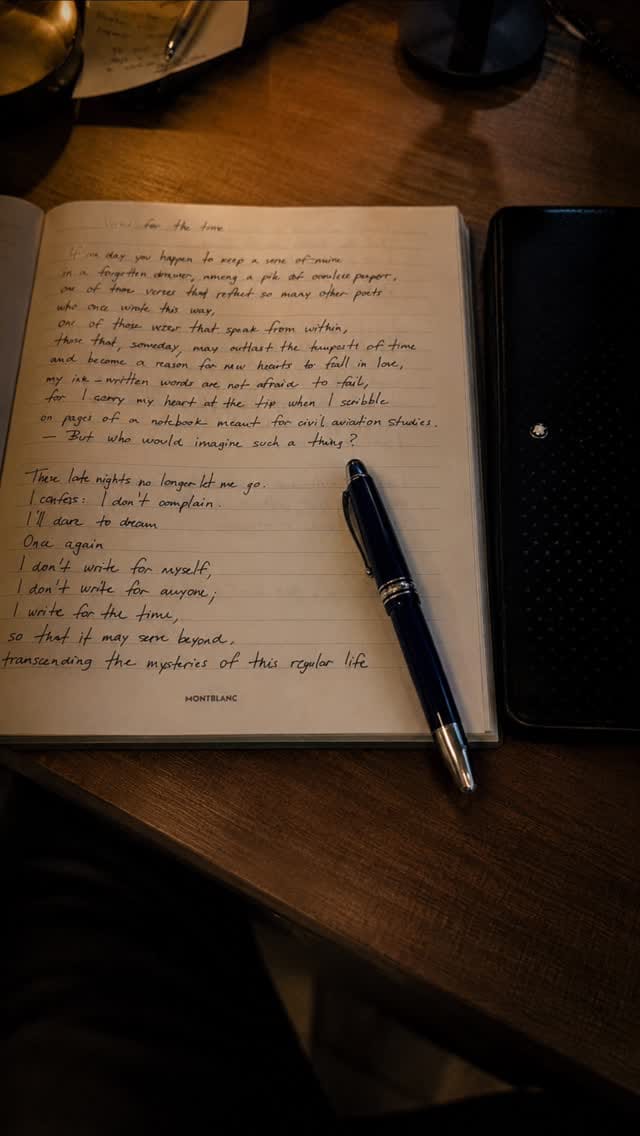 for the time
If one day you happen to keep a verse of mine
in a forgotten drawer, among a pile of papers,
one of those verses that reflect so many other poets
who once wrote this way,
one of those verses that speak from within,
those that, someday, may outlast the tempests of time
and become a reason for new hearts to fall in love,
my ink-written words are not afraid to fail,
for I carry my heart at the tip when I scribble
on pages of a notebook meant for civil aviation studies.
— But who would imagine such a thing?
These late nights no longer let me go.
I confess: I don't complain.
I'll dare to dream
Once again
I don't write for myself,
I don't write for anyone;
I write for the time,
so that it may serve beyond,
transcending the mysteries of this regular life
MONTBLANC